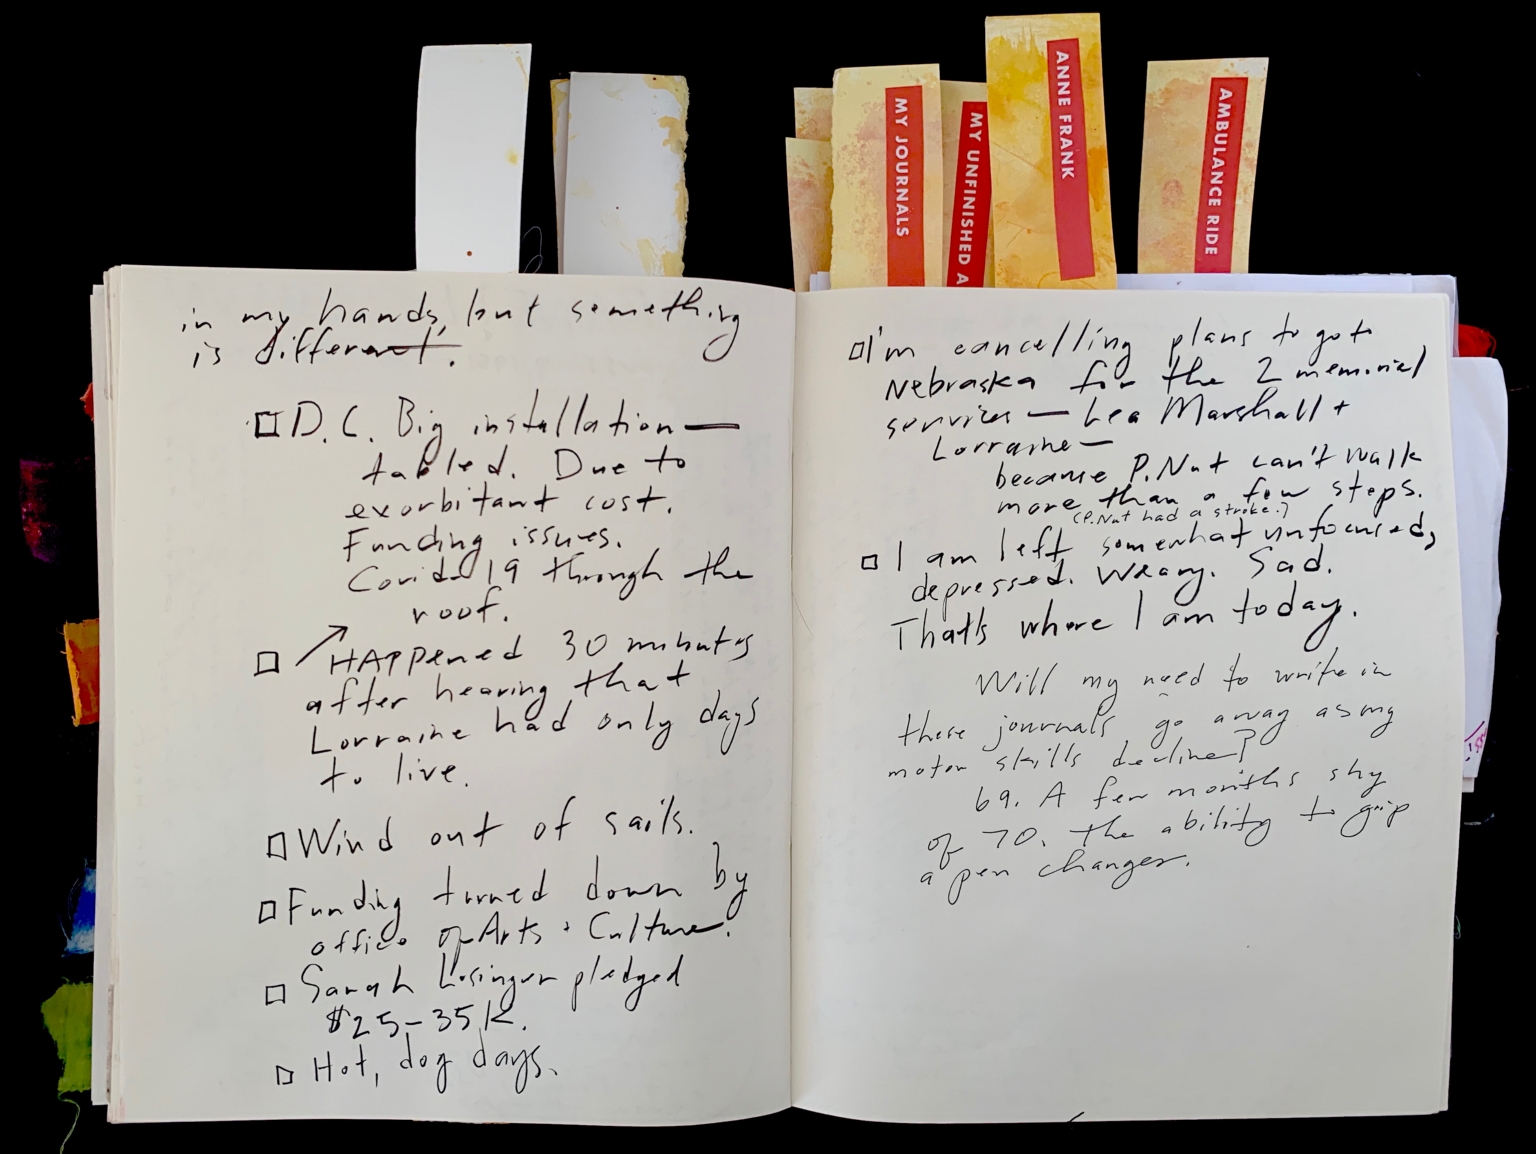 MY JOURNALS
MY UNFINISHED A
ANNE FRANK
AMBULANCE RIDE
in my hands, but something
is different.
D.C. Big installation —
tabled. Due to
exorbitant cost.
Funding issues.
Covid-19 through the
roof.
HAPPened 30 minutes
after hearing that
Lorraine had only days
to live.
Wind out of sails.
Funding turned down by
office of Arts + Culture.
Sarah Losinger pledged
$25-35K.
Hot, dog days.
I'm cancelling plans to go to
Nebraska for the 2 memorial
services — Lea Marshall +
Lorraine —
because P.Nut can't walk
more than a few steps.
(P.Nut had a stroke.)
I am left somewhat unfocused,
depressed. Weary. Sad.
That's where I am today.
Will my need to write in
these journals go away as my
motor skills decline?
69. A few months shy
of 70. The ability to grip
a pen changes.